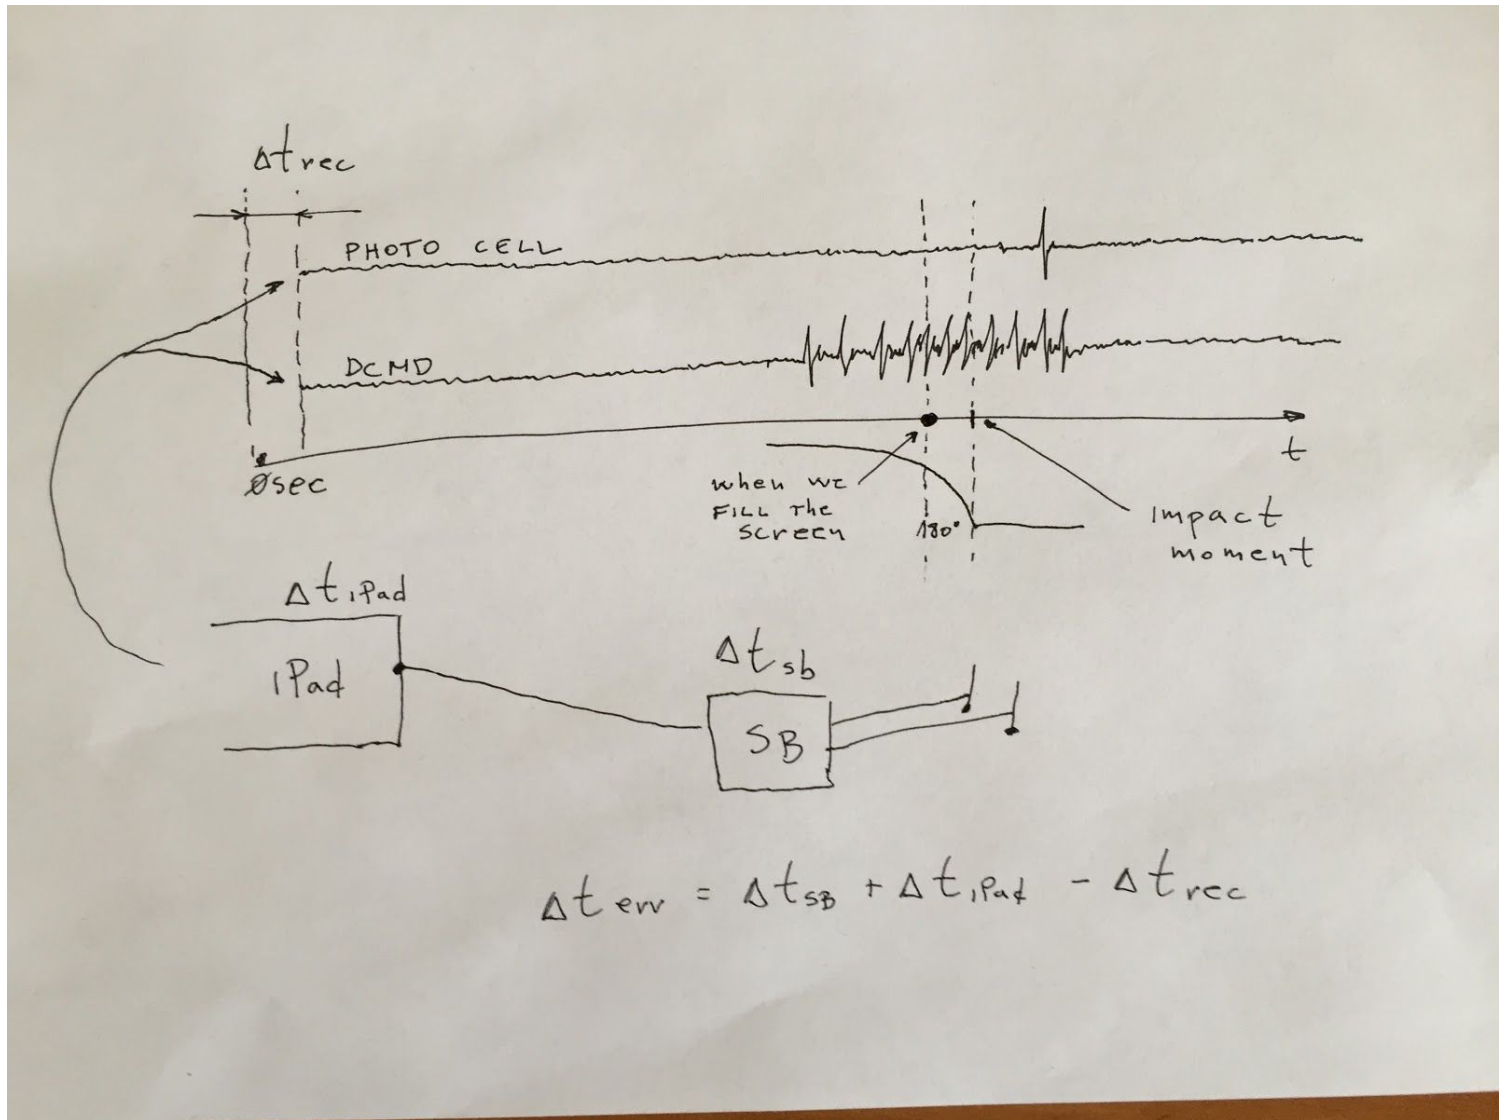 Δt rec
PHOTO CELL
DCMD
t
0sec
when we
FILL THE
SCREEN
180°
IMPACT
MOMENT
Δt iPad
iPad
Δt sb
SB
Δt err = Δt SB + Δt iPad - Δt rec